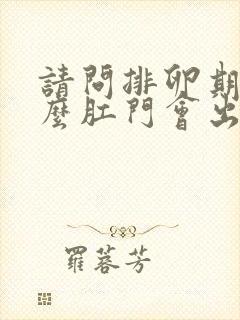 請問排卵期
麼肛門會出
羅蓉芳